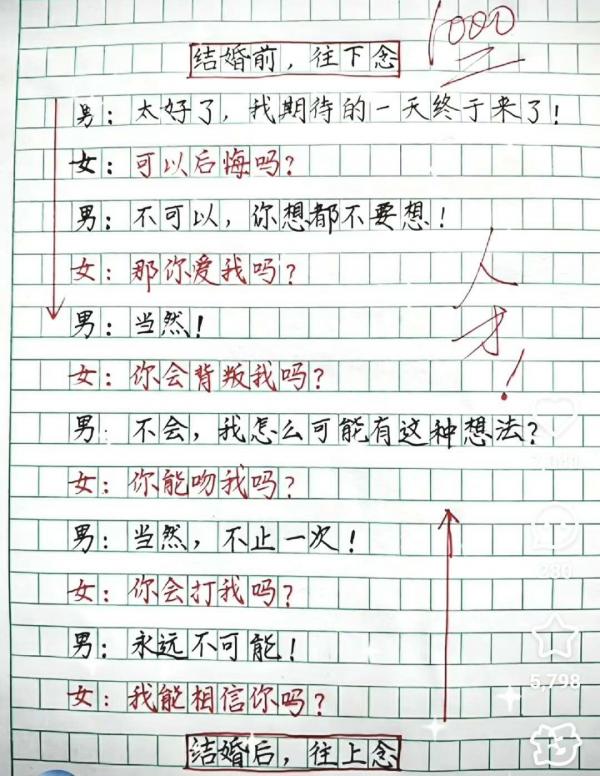 1000
结婚前，往下念
男：太好了，我期待的一天终于来了！
女：可以后悔吗？
男：不可以，你想都不要想！
女：那你爱我吗？
男：当然！
女：你会背叛我吗？
男：不会，我怎么可能有这种想法？
女：你能吻我吗？
男：当然，不止一次！
女：你会打我吗？
男：永远不可能！
女：我能相信你吗？
结婚后，往上念
人才！
280
5,798